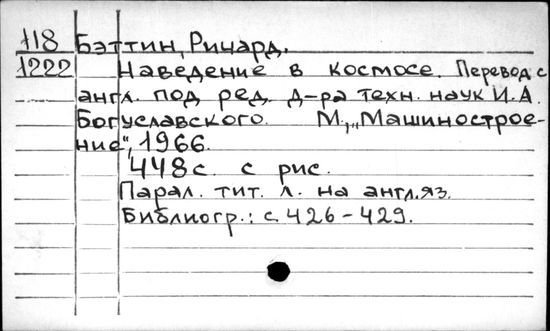 118 Бэттин, Ричард.
1222 Наведение в космосе. Перевод с
англ. под ред. д-ра техн. наук И.А.
Богуславского. М., „Машинострое-
ние", 1966.
448 с. с рис.
Парал. тит. л. на англ. яз.
Библиогр.: с. 426-429.